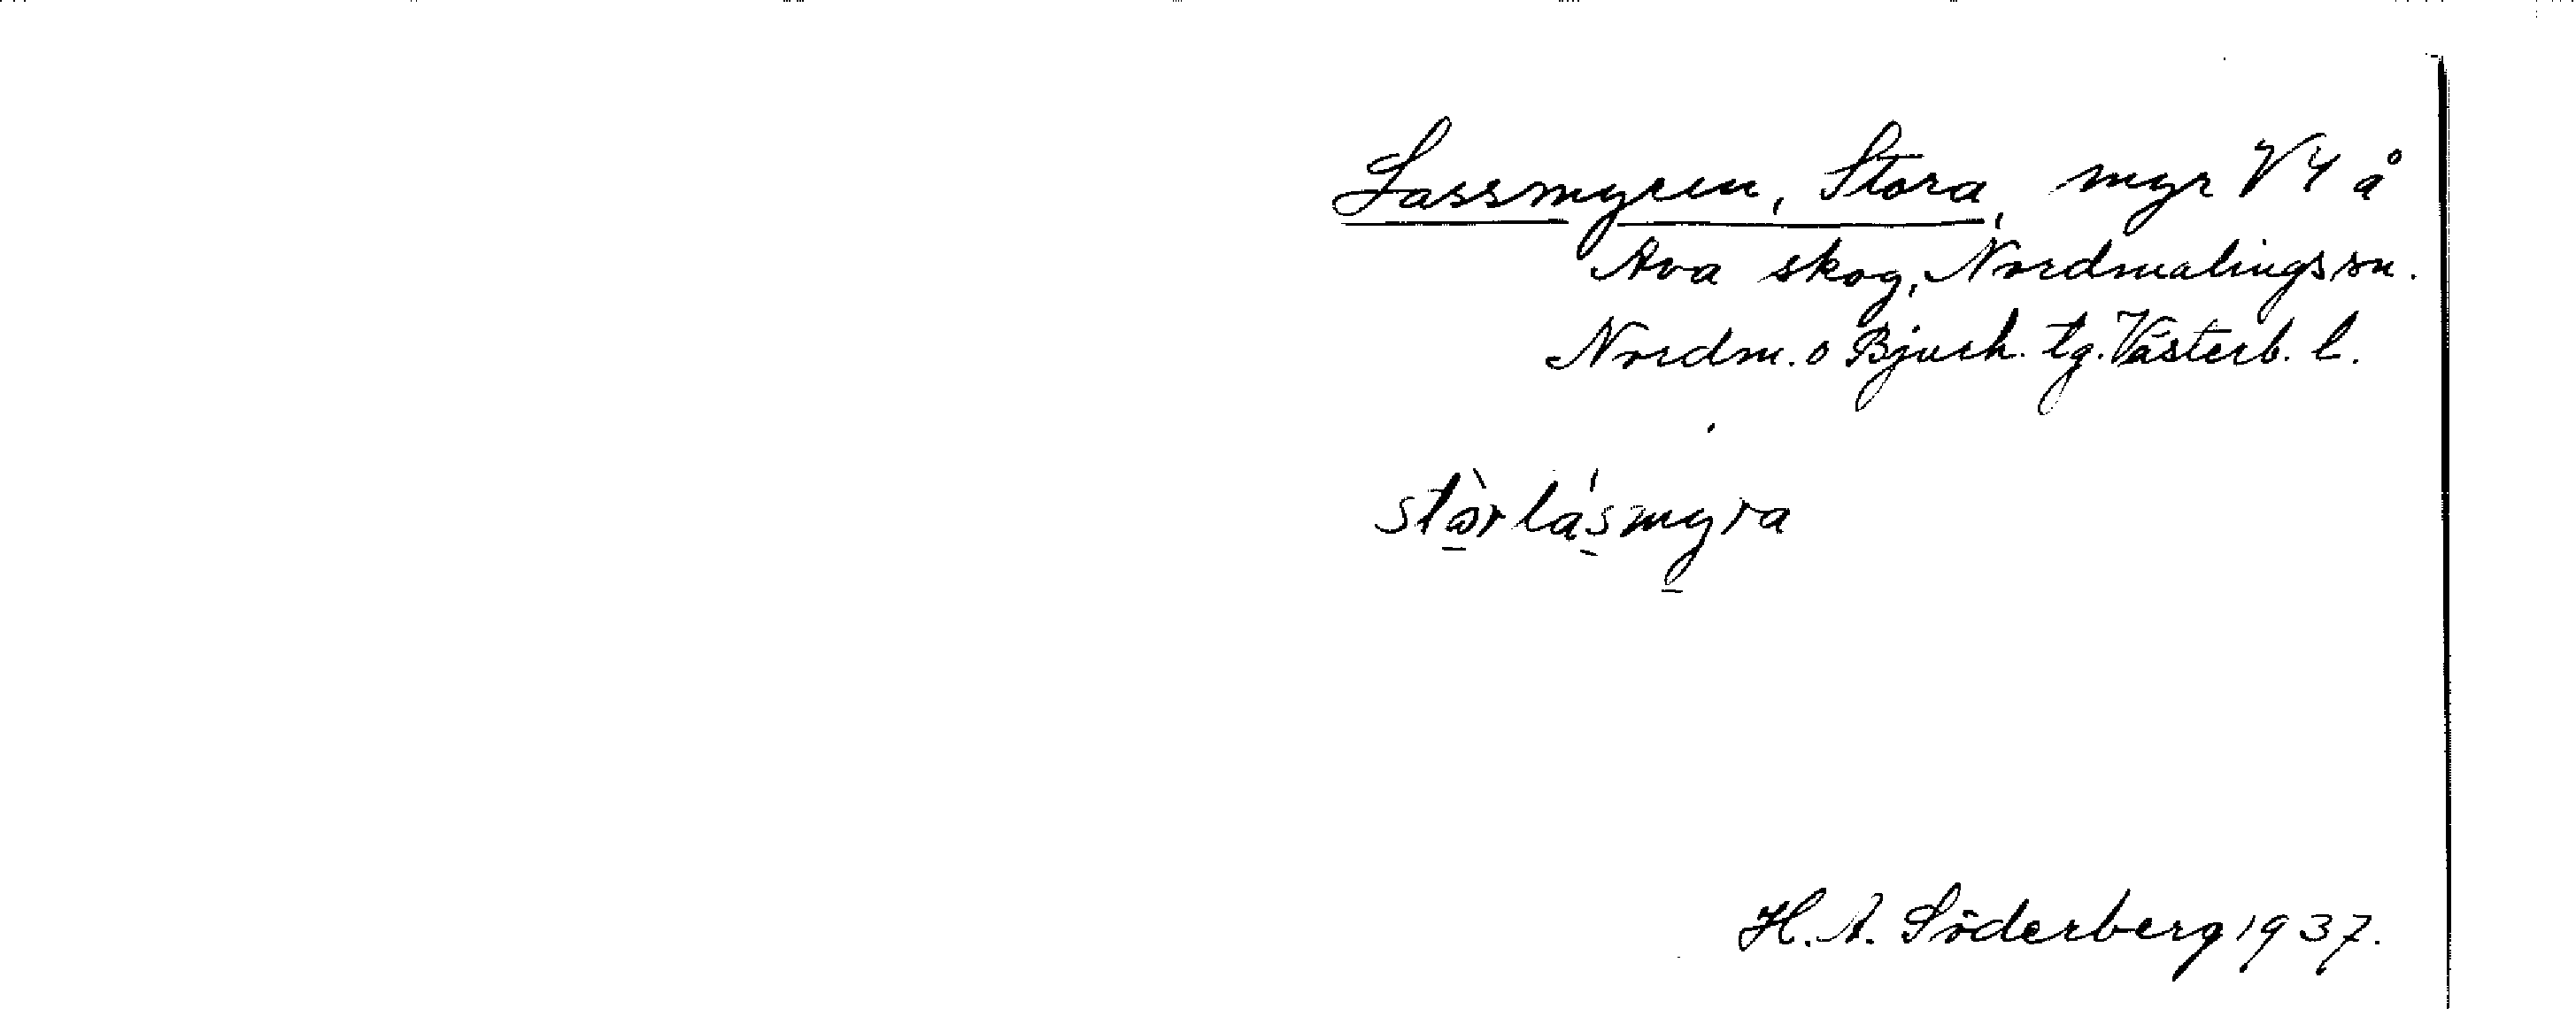 Lassmyren, Stora, myr V4 å
Ava skog, Nordmalings sn.
Nordm. o Bjurh. tg. Västerb. l.
stòrlásmyra
H. A. Söderberg 1937.